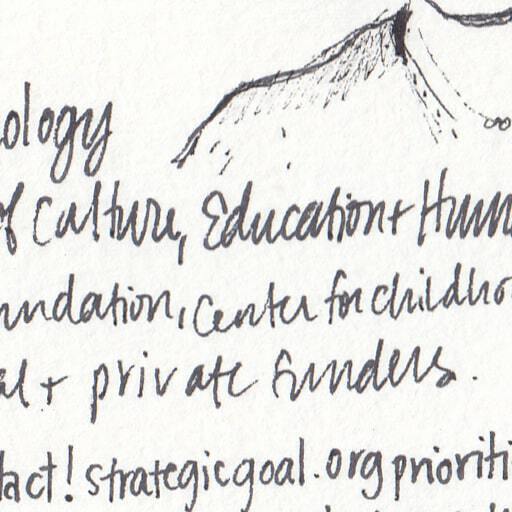 ology
of Culture, Education + Hum
undation, Center for childho
al + private funders.
tact! strategicgoal.org prioriti